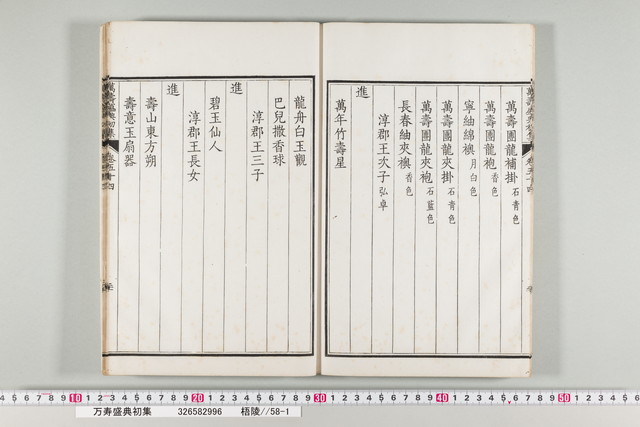 萬壽團龍補掛石青色
萬壽團龍袍香色
寧紬綿襖月白色
萬壽團龍夾掛石青色
萬壽團龍夾袍石藍色
長春紬夾襖香色
淳郡王次子弘卓
進
萬年竹壽星
龍舟白玉觀
巴兒撒香球
淳郡王三子
進
碧玉仙人
淳郡王長女
進
壽山東方朔
壽意玉扇器
10 20 30 40 50
万寿盛典初集 326582996 梧陵//58-1